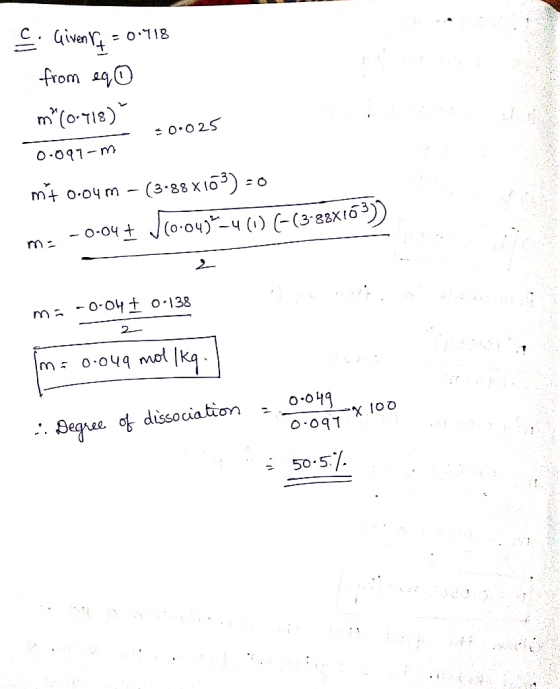 C. Given γ± = 0.718
from eq ①
m²(0.718)²
0.097-m
= 0.025
m² + 0.04m - (3.88×10⁻³) = 0
m = -0.04 ± √(0.04)² - 4(1)(-(3.88×10⁻³))
2
m = -0.04 ± 0.138
2
m = 0.049 mol/kg.
∴ Degree of dissociation = 0.049 × 100
0.097
= 50.5%.